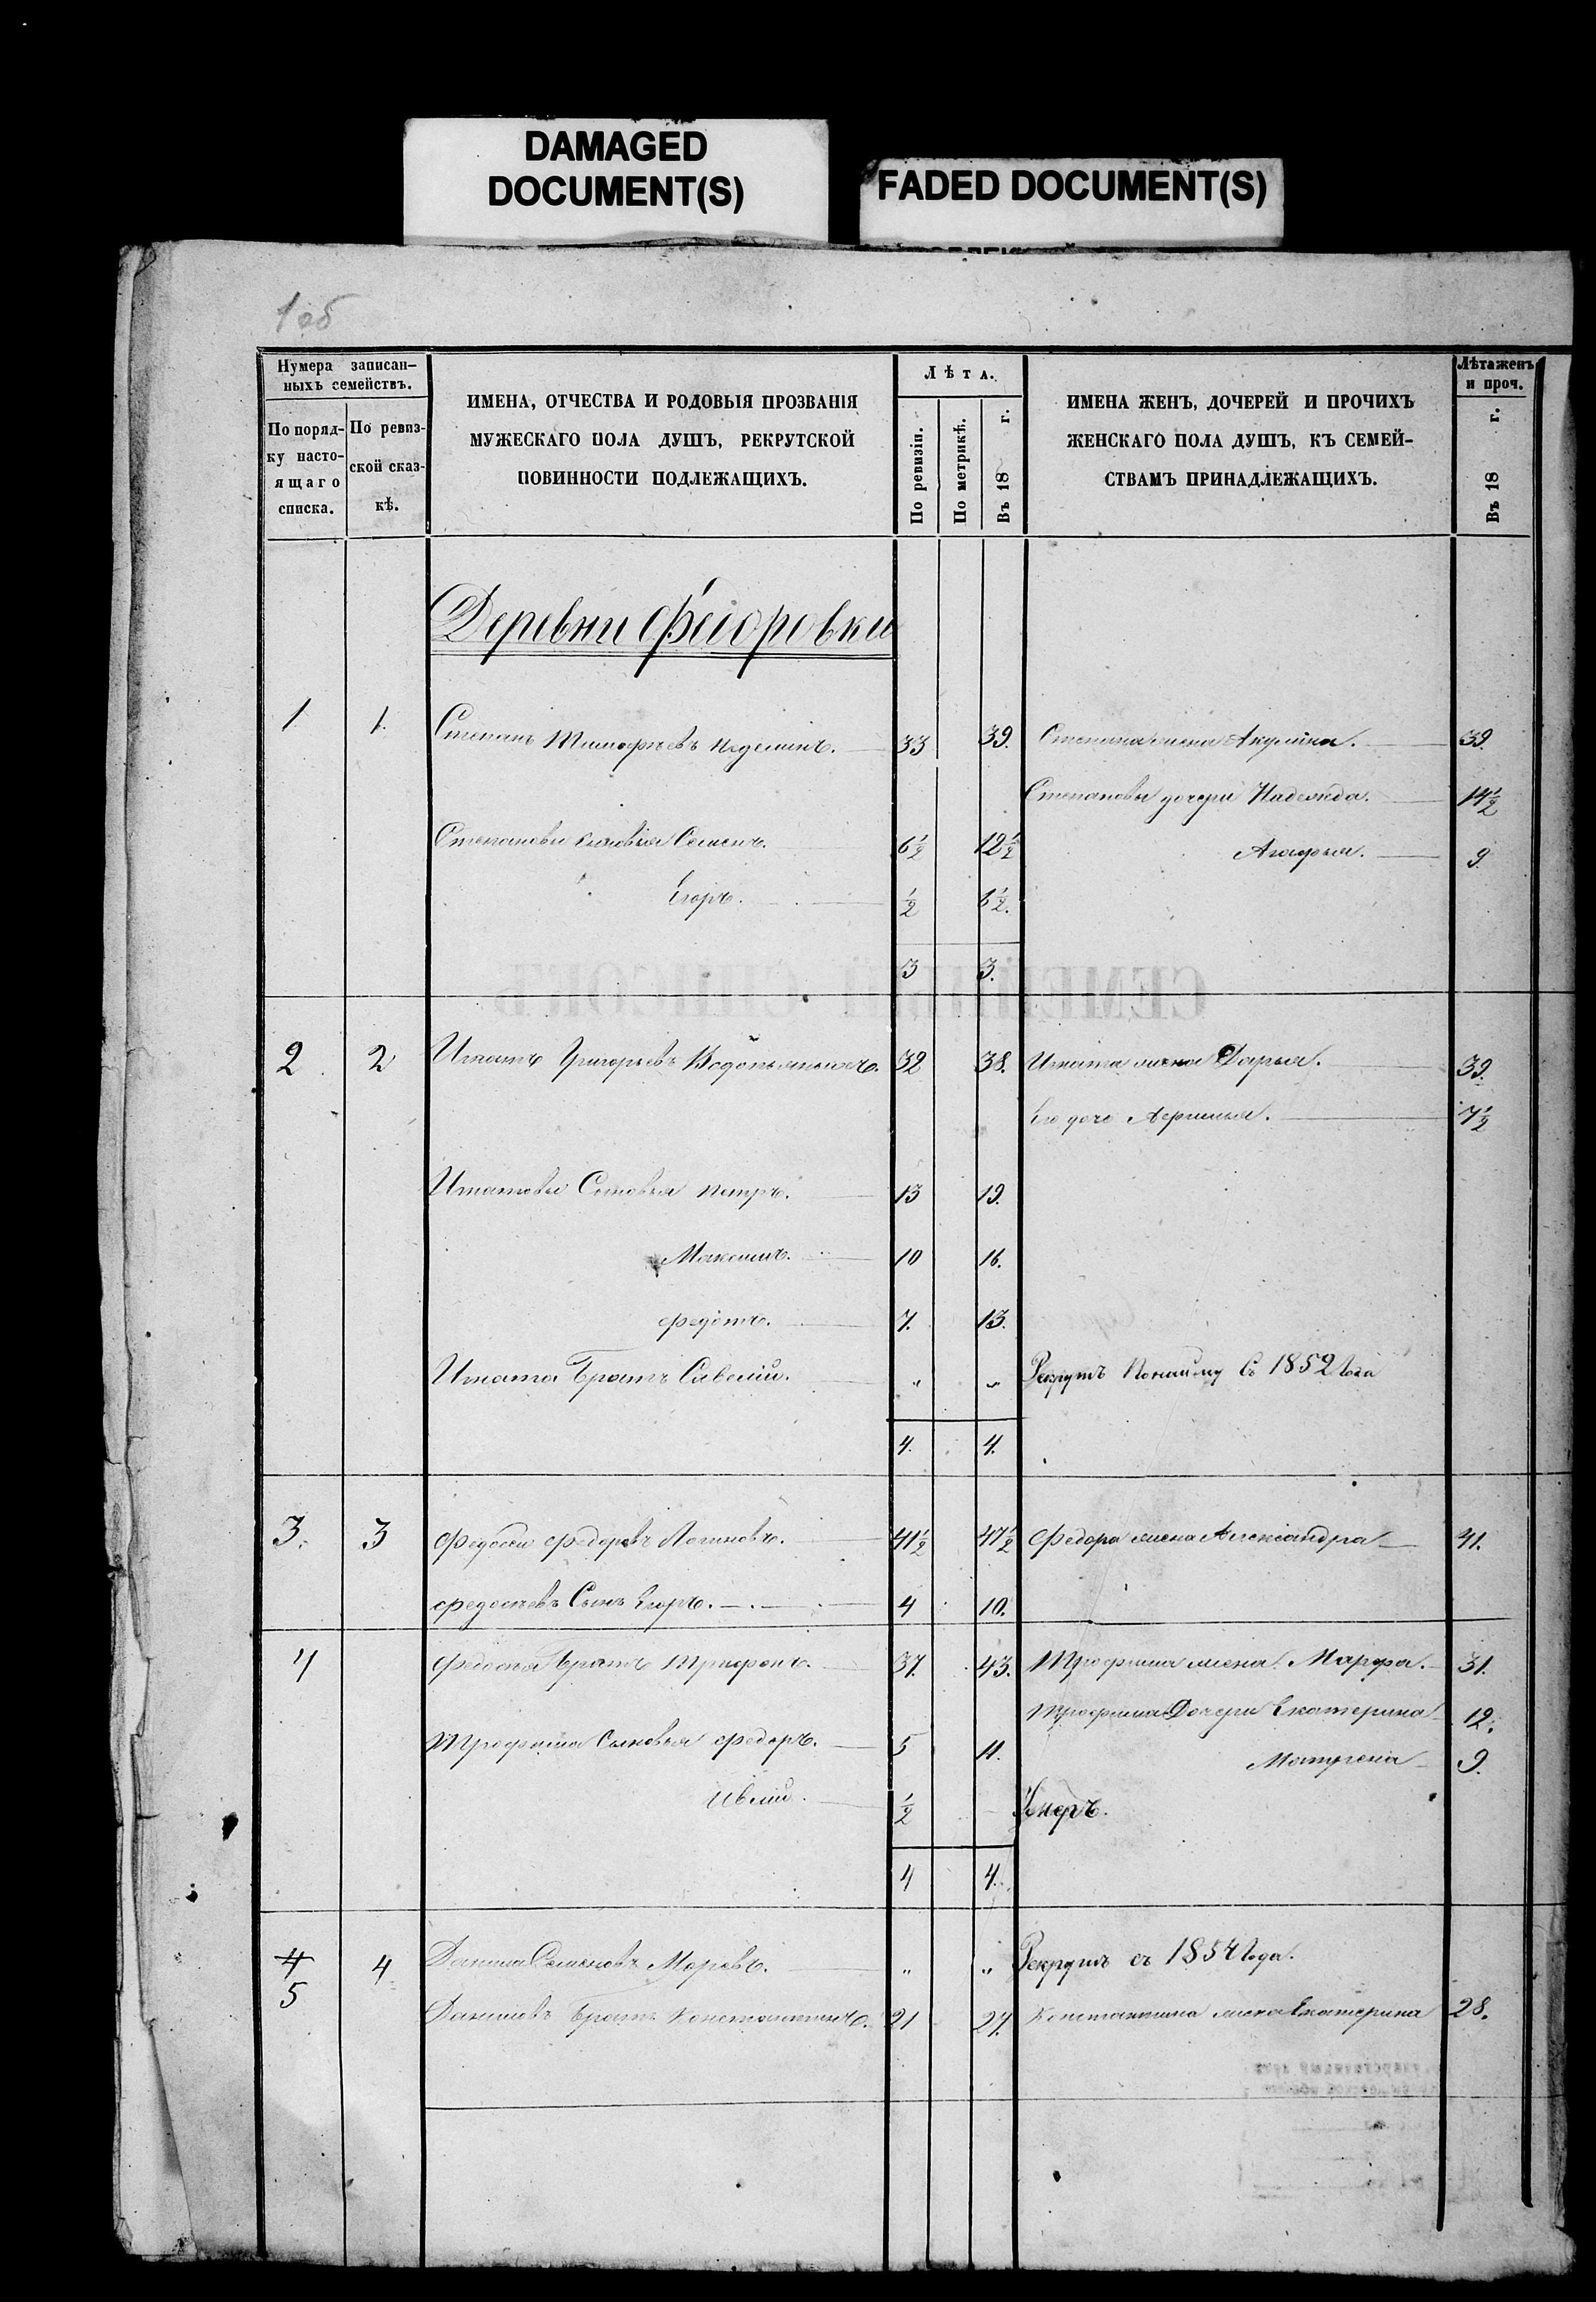 DAMAGED
DOCUMENT(S)
FADED DOCUMENT(S)
1об
Нумера записан-
ныхъ семействъ.
По поряд-
ку насто-
ящаго
списка.
По ревиз-
ской сказ-
кѣ.
ИМЕНА, ОТЧЕСТВА И РОДОВЫЯ ПРОЗВАНІЯ
МУЖЕСКАГО ПОЛА ДУШЪ, РЕКРУТСКОЙ
ПОВИННОСТИ ПОДЛЕЖАЩИХЪ.
Лѣта.
По ревизіи.
По метрикѣ.
Въ 18 г.
ИМЕНА ЖЕНЪ, ДОЧЕРЕЙ И ПРОЧИХЪ
ЖЕНСКАГО ПОЛА ДУШЪ, КЪ СЕМЕЙ-
СТВАМЪ ПРИНАДЛЕЖАЩИХЪ.
Лѣта женъ
и проч.
Въ 18 г.
Деревни Ѳедоровки
1 1. Степанъ Тимофѣевъ 33 39. Степана жена Акулина. 39.
Степановы дочери Надежда. 14½
Степановы сыновья Семенъ. 6½ 12½ Агафья. 9.
Егоръ. ½ 6½.
3 3.
СЕМЕЙНЫЙ СПИСОКЪ
2 2 Игнатъ Григорьевъ 32 38. Игната жена Дарья. 39.
Его дочь 7½
Игнатовы Сыновья Петръ. 13 19.
Максимъ. 10 16.
Федотъ. 7. 13.
Игната Братъ Савелий. „ „ Рекрутъ по найму Съ 1852 Года
4. 4.
3. 3 Федосей Федоровъ Логиновъ. 41½ 47½ Федора жена Александра 41.
Федосѣевъ Сынъ Егоръ. 4 10.
4 Федосея братъ 37. 43. Трофима жена Марфа. 31.
Трофима Дочери Екатерина 12.
Трофима Сыновья Федоръ. 5 11. Матрена 9.
½ Умеръ.
4 4.
4 4 Данила Семеновъ Моревъ. „ „ Рекрутъ съ 1854 Года.
5 Даниловъ братъ Константинъ. 21 27. Константина жена Екатерина 28.